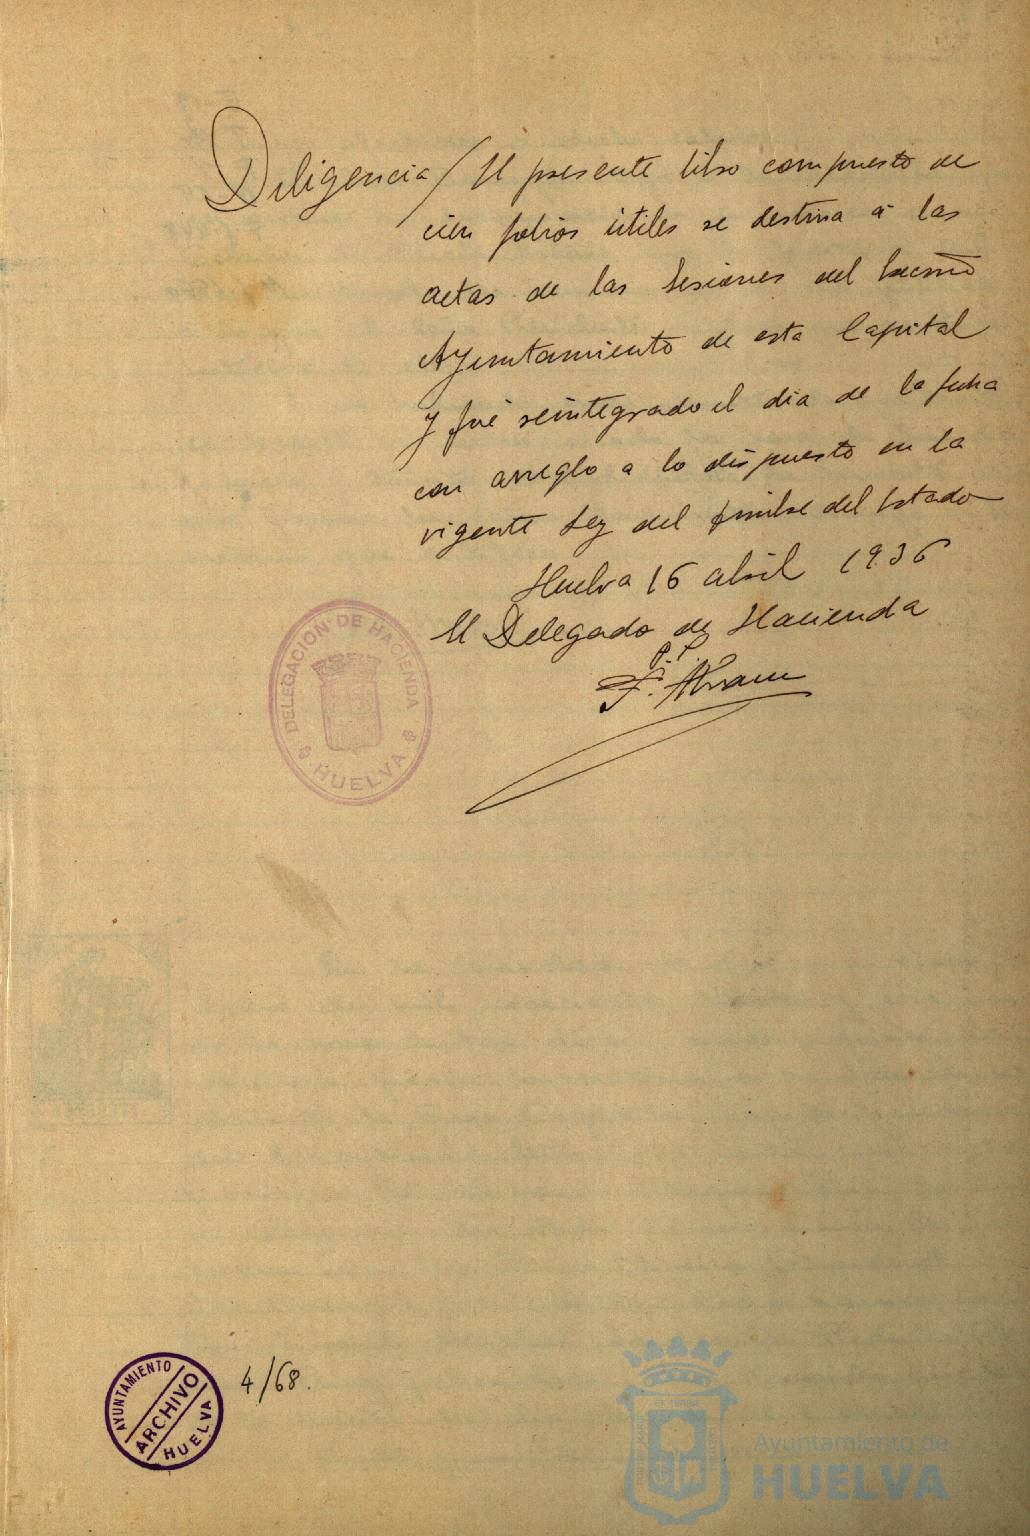 Diligencia / El presente libro compuesto de
cien folios útiles se destina á las
actas de las Sesiones del Excmo
Ayuntamiento de esta Capital
y fué reintegrado el día de la fecha
con arreglo a lo dispuesto en la
vigente Ley del timbre del Estado
Huelva 16 abril 1936
El Delegado de Hacienda
P.P.
F.
DELEGACION DE HACIENDA
HUELVA
AYUNTAMIENTO
ARCHIVO
HUELVA
4/68.
Ayuntamiento de
HUELVA